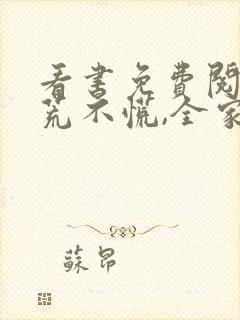 看書免費閱
荒不慌,全家
蘇昂